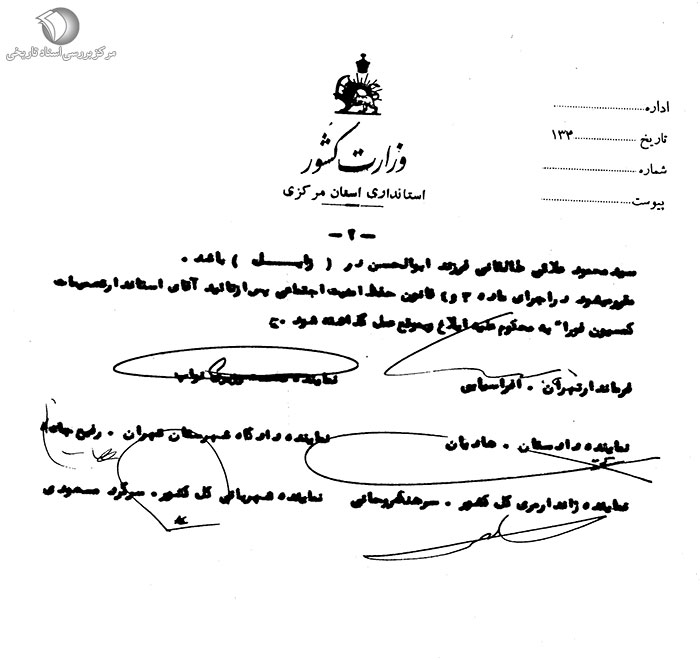 مرکز بررسی اسناد تاریخی
اداره
تاریخ ۱۳۴
شماره
پیوست
وزارت کشور
استانداری استان مرکزی
- ۲ -
سید محمود علائی طالقانی فرزند ابوالحسن در ( زابل ) باشد .
مقرر میشود در اجرای ماده ۳ و ۴ قانون حفظ امنیت اجتماعی پس از تائید آقای استاندار تصمیمات
کمسیون فورا" به محکوم علیه ابلاغ و بموقع عمل گذاشته شود . ج
فرماندار تهران . افراسیابی
نماینده نواب
نماینده دادستان . هادیان
نماینده دادگاه شهرستان تهران . رفیع
نماینده ژاندارمری کل کشور . سرهنگ ریحانی
نماینده شهربانی کل کشور . سرگرد مسعودی